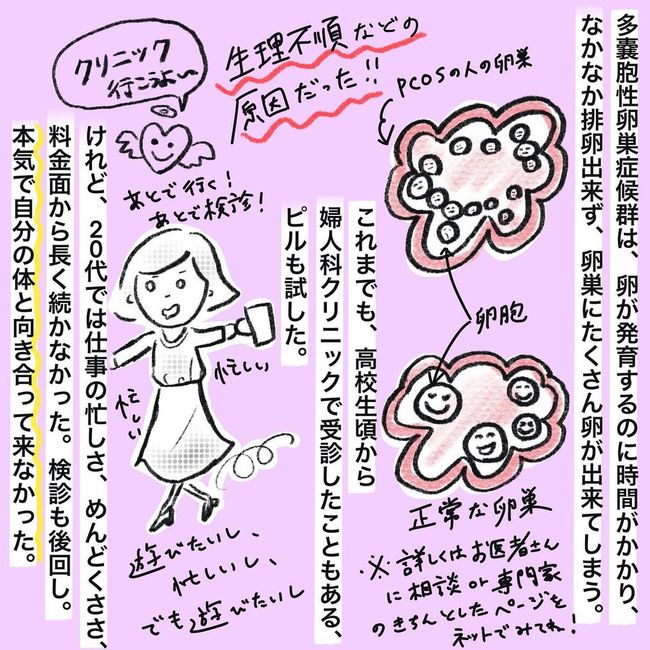 多嚢胞性卵巣症候群は、卵が発育するのに時間がかかり、
なかなか排卵出来ず、卵巣にたくさん卵が出来てしまう。
PCOSの人の卵巣
生理不順などの
原因だった!!
卵胞
正常な卵巣
※詳しくはお医者さん
に相談or専門家
のきちんとしたページを
ネットでみてね!
これまでも、高校生頃から
婦人科クリニックで受診したこともある、
ピルも試した。
クリニック
行こうよ〜
あとで行く!
あとで検診!
忙しい
忙しい
遊びたいし、
忙しいし、
でも遊びたいし
けれど、20代では仕事の忙しさ、めんどくささ、
料金面から長く続かなかった。検診も後回し。
本気で自分の体と向き合って来なかった。